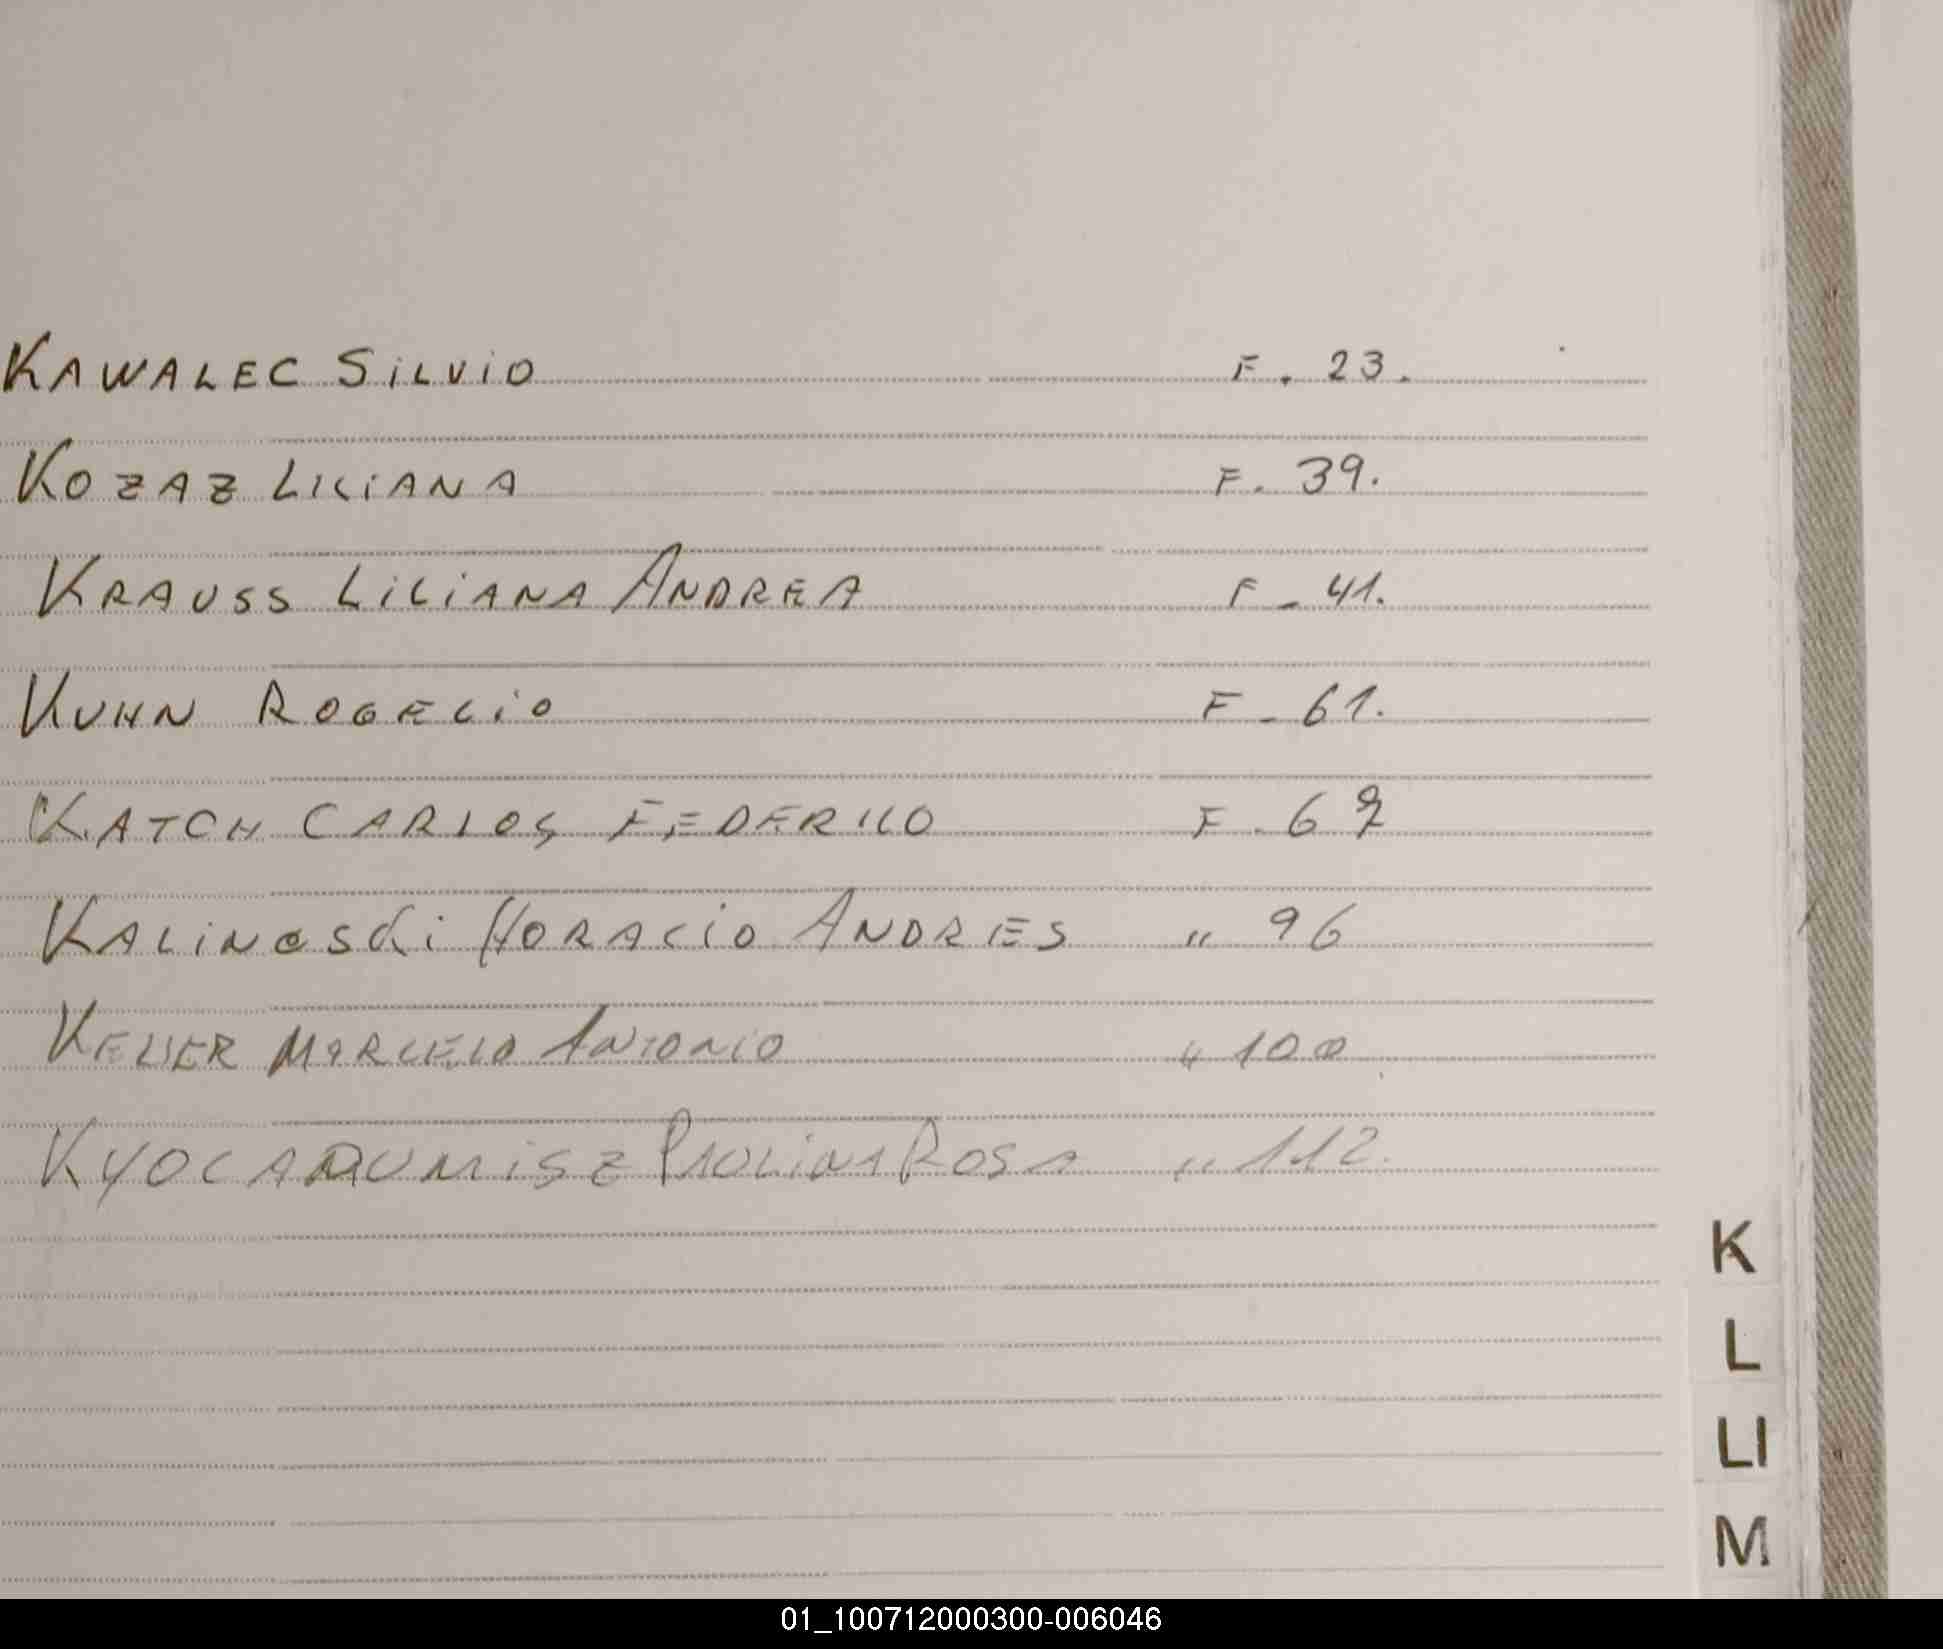 KAWALEC SiLViO F. 23.
KOZAZ LILIANA F. 39.
KRAUSS LiLiANA ANDREA F - 41.
KUHN ROGELiO F - 61.
KATCH CARLOS FEDERICO F. 69
KALiNOSKi HORACiO ANDRES " 96
KELLER MARCELO ANTONIO " 100
PAULINA ROSA " 112.
K
L
Ll
M
01_100712000300-006046